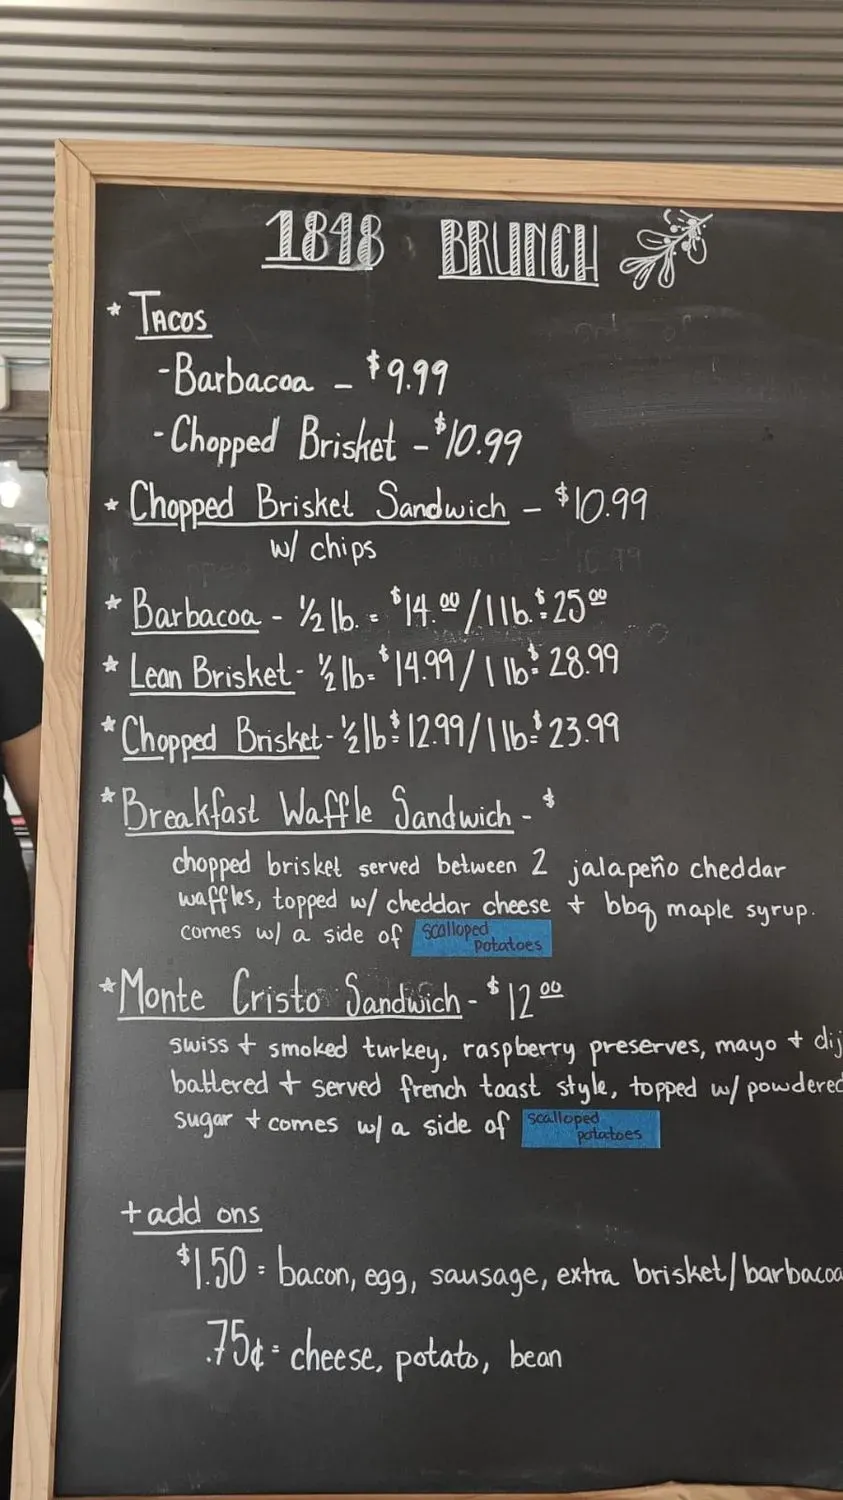 1848 BRUNCH
* TACOS
- Barbacoa - $9.99
- Chopped Brisket - $10.99
* Chopped Brisket Sandwich - $10.99
w/ chips
* Barbacoa - 1/2 lb. = $14.00/1 lb. = $25.00
* Lean Brisket - 1/2 lb = $14.99/1 lb = $28.99
* Chopped Brisket - 1/2 lb = $12.99/1 lb = $23.99
* Breakfast Waffle Sandwich - $
chopped brisket served between 2 jalapeño cheddar
waffles, topped w/ cheddar cheese + bbq maple syrup.
comes w/ a side of scalloped
potatoes
* Monte Cristo Sandwich - $12.00
swiss + smoked turkey, raspberry preserves, mayo + dij
battered + served french toast style, topped w/ powdered
sugar + comes w/ a side of scalloped
potatoes
+ add ons
$1.50 = bacon, egg, sausage, extra brisket/barbacoa
.75¢ = cheese, potato, bean